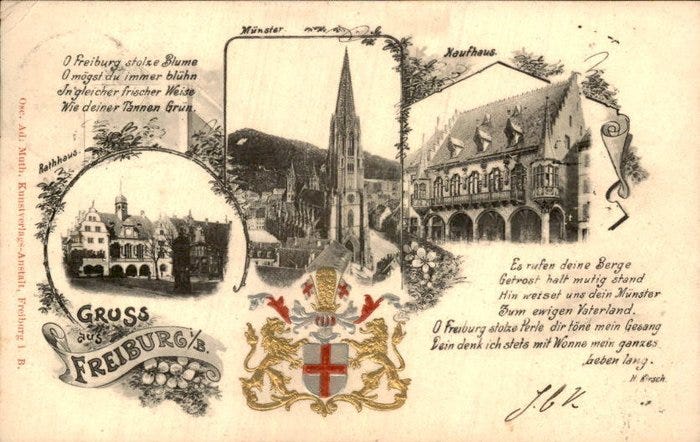 O Freiburg stolze Blume
O mögst du immer blühn
In gleicher frischer Weise
Wie deiner Tannen Grün.
Münster
Kaufhaus.
Rathhaus.
Osc. Ad. Muth, Kunstverlags-Anstalt, Freiburg i B.
GRUSS
aus
FREIBURG i/B.
Es rufen deine Berge
Getrost halt mutig stand
Hin weiset uns dein Münster
Zum ewigen Vaterland.
O Freiburg stolze Perle dir töne mein Gesang
Dein denk ich stets mit Wonne mein ganzes
Leben lang.
H. Kirsch.